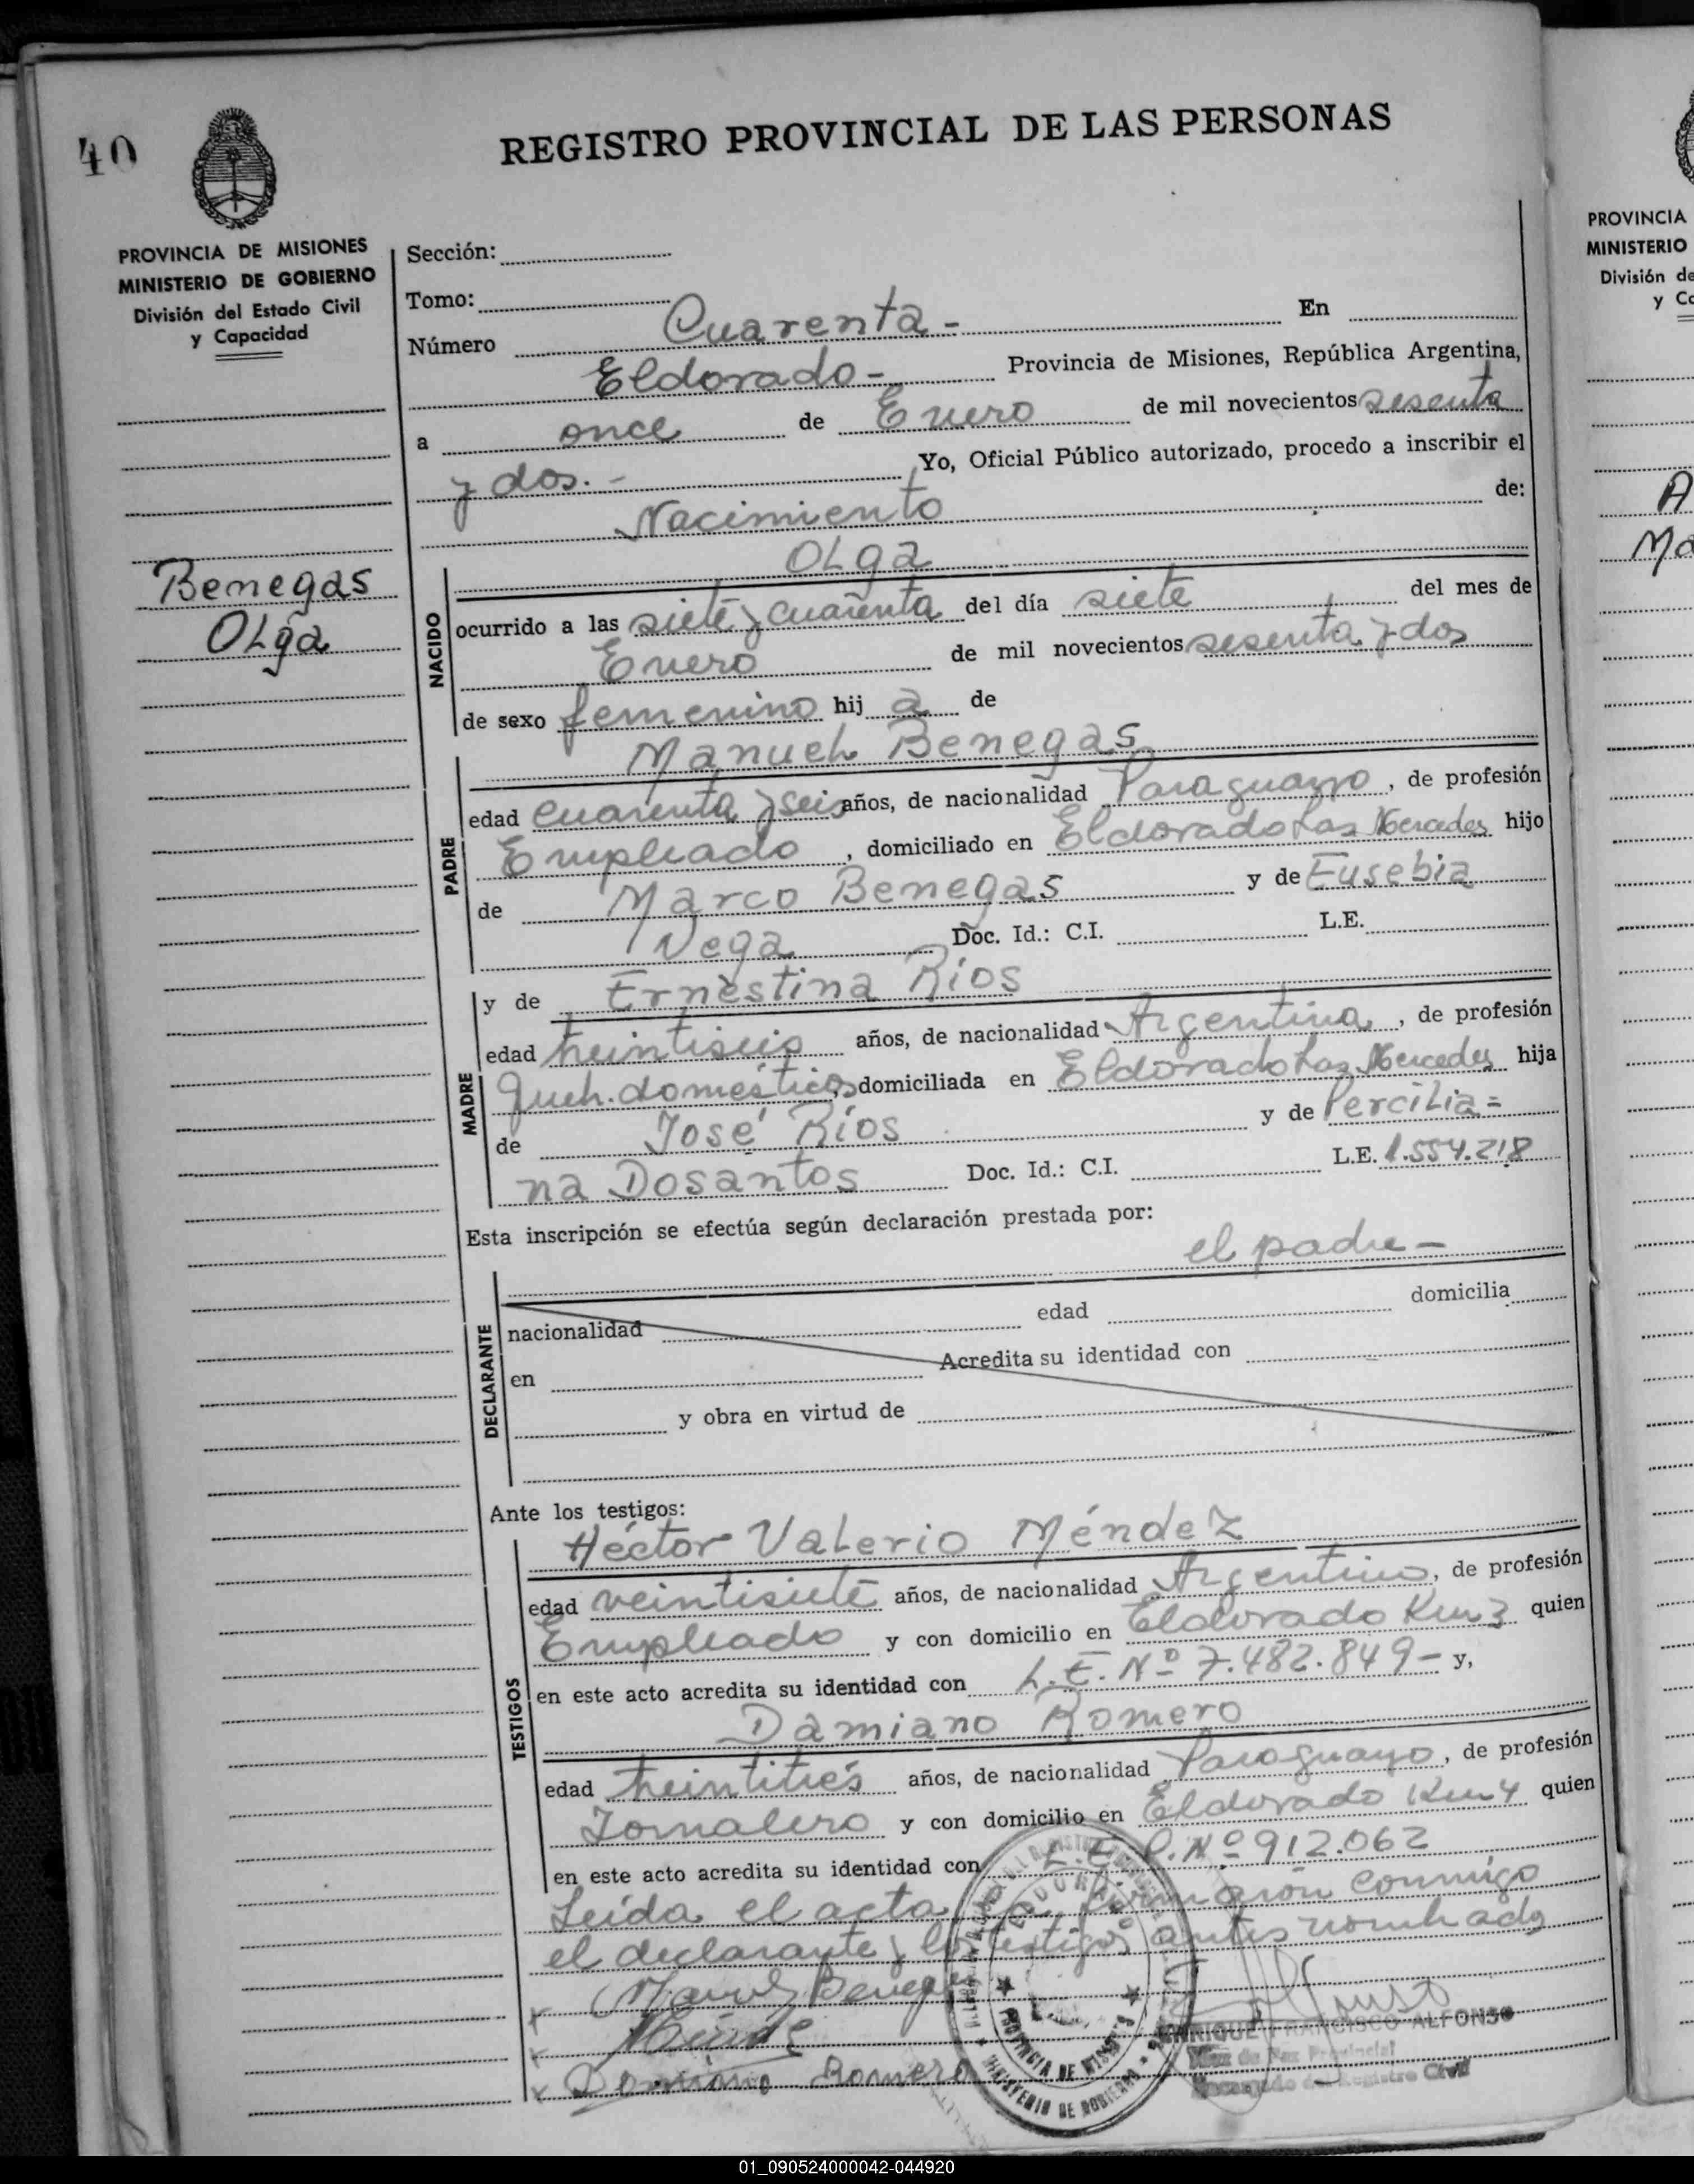 40
REGISTRO PROVINCIAL DE LAS PERSONAS
PROVINCIA DE MISIONES
MINISTERIO DE GOBIERNO
División del Estado Civil
y Capacidad
Benegas
Olga
Sección:
Tomo:
Número Cuarenta - En
Eldorado - Provincia de Misiones, República Argentina,
a once de Enero de mil novecientos sesenta
y dos. - Yo, Oficial Público autorizado, procedo a inscribir el
Nacimiento de:
Olga
NACIDO
ocurrido a las siete y cuarenta del día siete del mes de
Enero de mil novecientos sesenta y dos
de sexo femenino hij a de
Manuel Benegas
PADRE
edad cuarenta y seis años, de nacionalidad Paraguayo, de profesión
Empleado, domiciliado en Eldorado Las Mercedes hijo
de Marco Benegas y de Eusebia
Vega Doc. Id.: C.I. L.E.
y de Ernestina Ríos
MADRE
edad treintiseis años, de nacionalidad Argentina, de profesión
Queh. domésticos, domiciliada en Eldorado Las Mercedes hija
de José Ríos y de Percilia=
na Dosantos Doc. Id.: C.I. L.E. 1.554.218
Esta inscripción se efectúa según declaración prestada por:
el padre -
DECLARANTE
nacionalidad edad domicilia
en Acredita su identidad con
y obra en virtud de
Ante los testigos:
Héctor Valerio Méndez
TESTIGOS
edad veintisiete años, de nacionalidad Argentino, de profesión
Empleado y con domicilio en Eldorado Km 3 quien
en este acto acredita su identidad con L.E. Nº 7.482.849 - y,
Damiano Romero
edad treintitrés años, de nacionalidad Paraguayo, de profesión
Jornalero y con domicilio en Eldorado Km 4 quien
en este acto acredita su identidad con P. Nº 912.062
Leída el acta la firmaron conmigo
el declarante y los testigos antes nombrados
Manuel Benegas
Méndez
Damiano Romero
PROVINCIA DE MISIONES
MINISTERIO DE GOBIERNO
ENRIQUE FRANCISCO ALFONSO
Juez de Paz Provincial
Encargado del Registro Civil
PROVINCIA
MINISTERIO
División de
y Ca
A
Ma
01_090524000042-044920